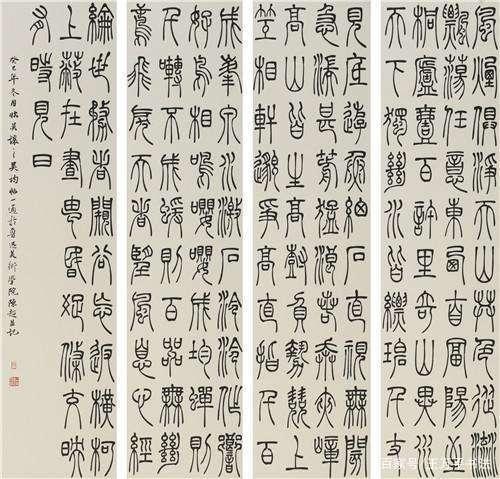 風煙俱淨天山共色從流
飄蕩任意東西自富陽至
桐廬一百許里奇山異水
天下獨絕水皆縹碧千丈
見底遊魚細石直視無礙
急湍甚箭猛浪若奔夾嶂
高山皆生寒樹負勢競上
互相軒邈爭高直指千百
成峯泉水激石泠泠作響
好鳥相鳴嚶嚶成均蟬則
千轉不窮猨則百叫無絕
鳶飛戾天者望峯息心經
綸世務者闚谷忘返橫柯
上蔽在晝猶昏疏條交映
有時見日
癸巳年冬月臨吳讓之吳均帖一過於魯迅美術學院陳超並記
百家号